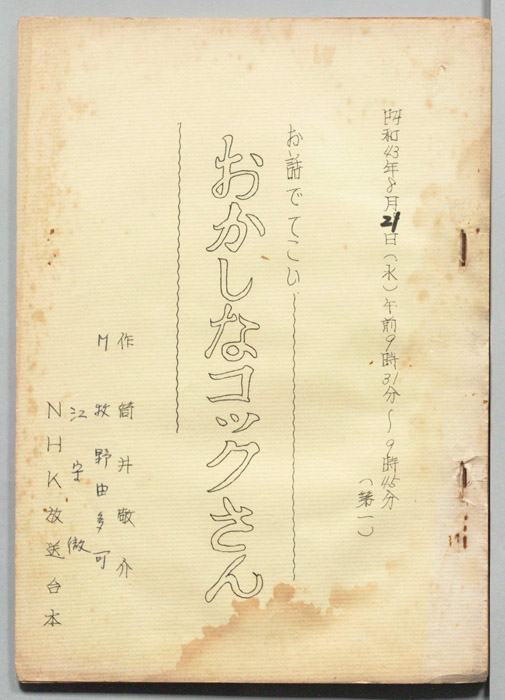 昭和43年8月21日(水)午前9時31分~9時45分
(第一)
お話でてこい
おかしなコックさん
作 筒井敬介
M 牧野由多可
江守徹
NHK放送台本